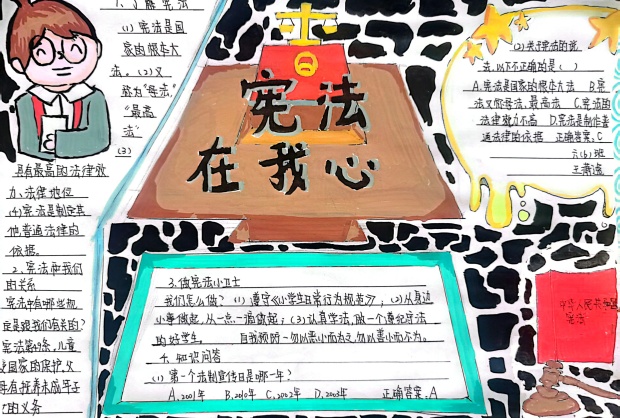 1、了解宪法
(1)宪法是国
家的根本大
法。(2)又
称为“母法”
“最高
法”
(3)
具有最高的法律效
力、法律地位
(4)宪法是制定其
他普通法律的
依据。
2、宪法和我们
的关系
宪法中有哪些规
定是跟我们有关的?
宪法第49条,儿童
受国家的保护,父
母有抚养未成年子
女的义务
宪法
在我心
3.做宪法小卫士
我们怎么做?(1)遵守《小学生日常行为规范》;(2)从身边
小事做起,从一点一滴做起;(3)认真学法,做一个遵纪守法
的好学生。 自我预防-勿以恶小而为之,勿以善小而不为。
4.知识问答
(1)第一个法制宣传日是哪一年?
A.2001年 B.2010年 C.2002年 D.2003年 正确答案:A
(2)关于宪法的说
法,以下不正确的是( )
A.宪法是国家的根本大法 B.宪
法又称母法、最高法 C.宪法的
法律效力不高 D.宪法是制作普
通法律的依据 正确答案:C
六(6)班
中华人民共和国
宪法